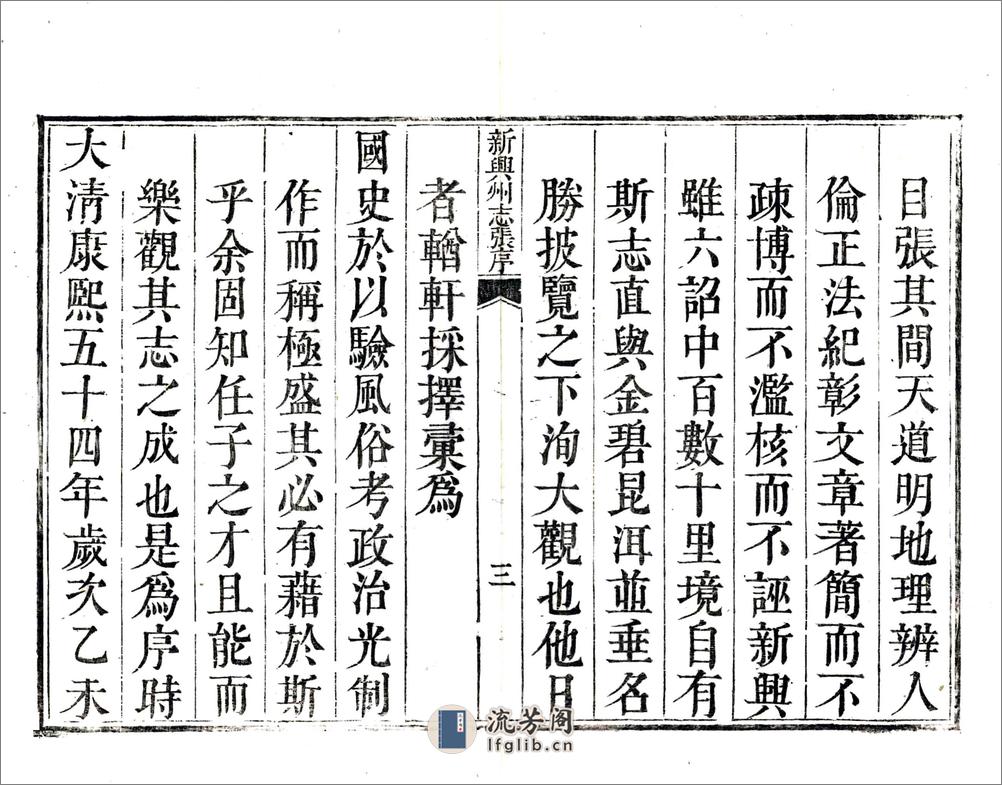 目張其間天道明地理辨人
倫正法紀彰文章著簡而不
疎博而不濫核而不誣新興
雖六詔中百數十里境自有
斯志直與金碧昆洱並垂名
勝披覽之下洵大觀也他日
新興州志張序
三
者輶軒採擇彙爲
國史於以驗風俗考政治光制
作而稱極盛其必有藉於斯
乎余固知任子之才且能而
樂觀其志之成也是爲序時
大清康熙五十四年歲次乙未
流芳阁
lfglib.cn